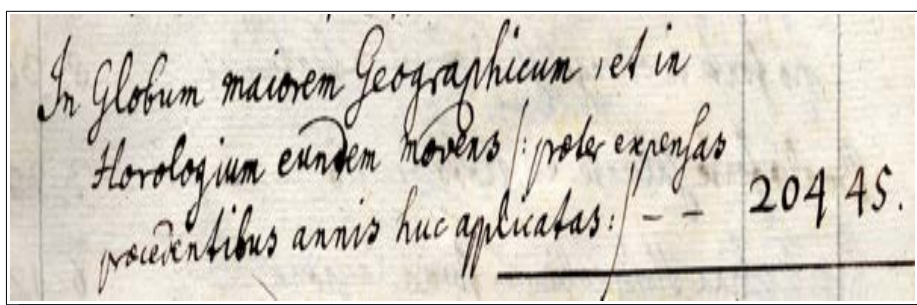 In Globum maiorem Geographicum, et in
Horologium eundem movens /: præter expensas
præcedentibus annis huc applicatas :/ — — 204 45.